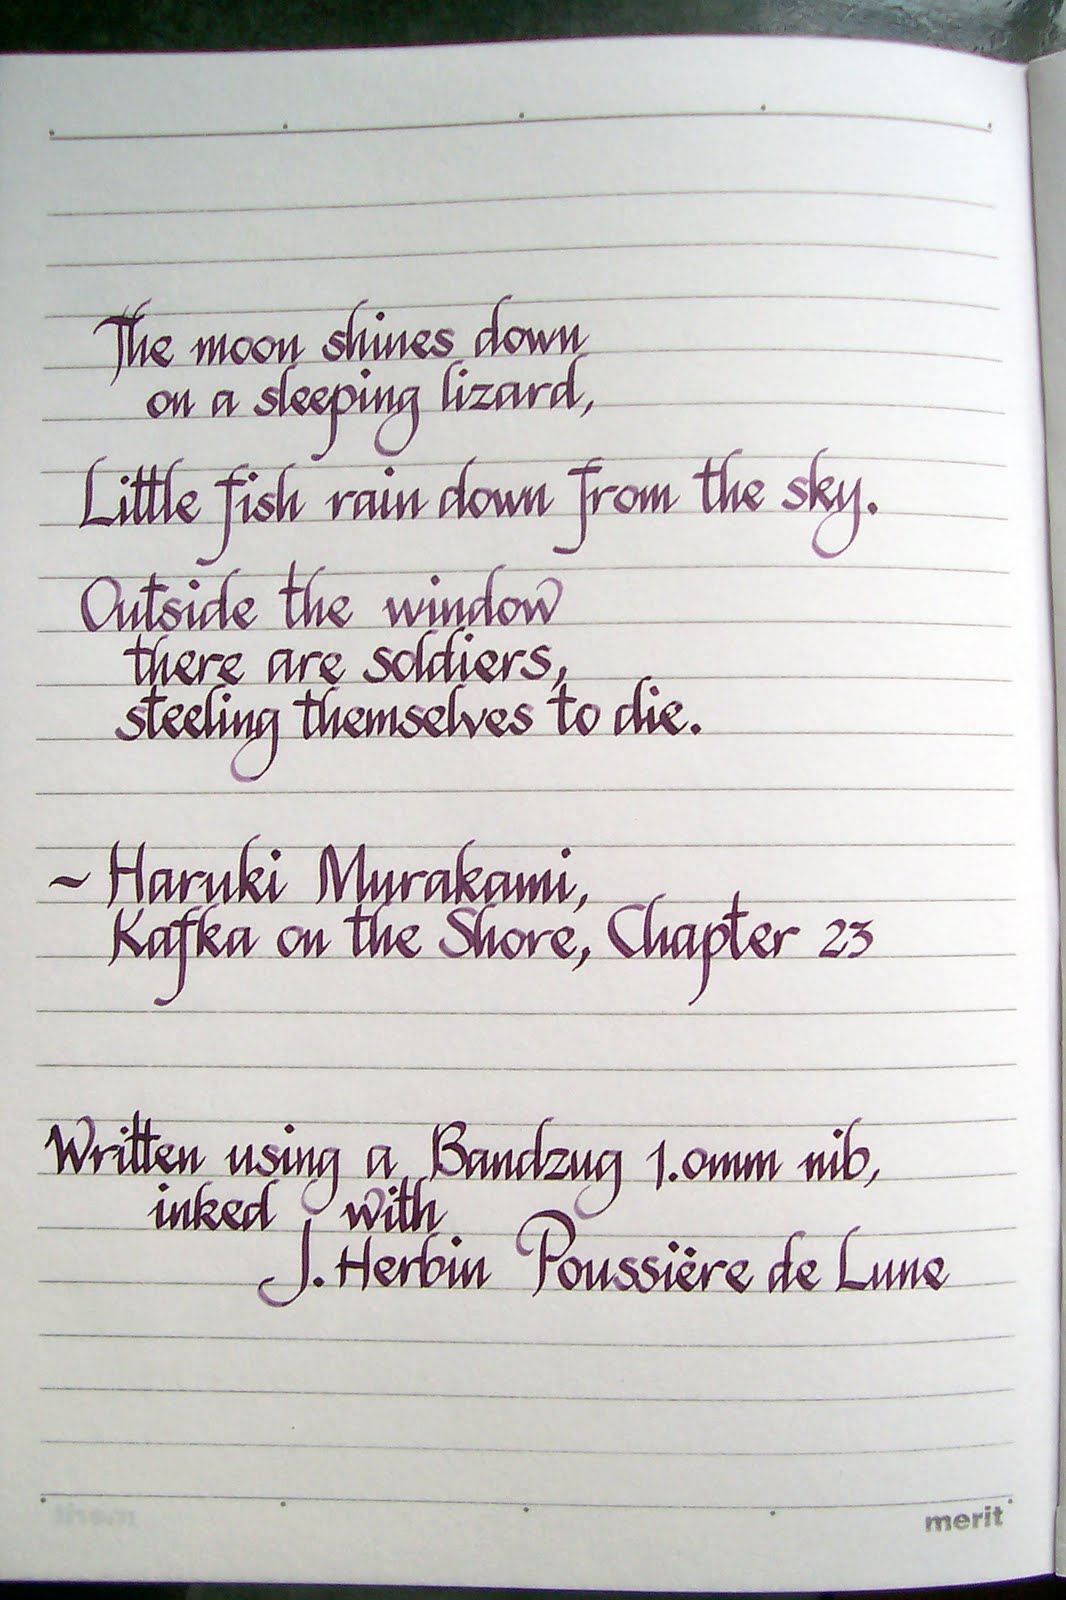 The moon shines down
on a sleeping lizard,
Little fish rain down from the sky.
Outside the window
there are soldiers,
steeling themselves to die.
~ Haruki Murakami,
Kafka on the Shore, Chapter 23
Written using a Bandzug 1.0mm nib,
inked with
J. Herbin Poussiëre de Lune
merit